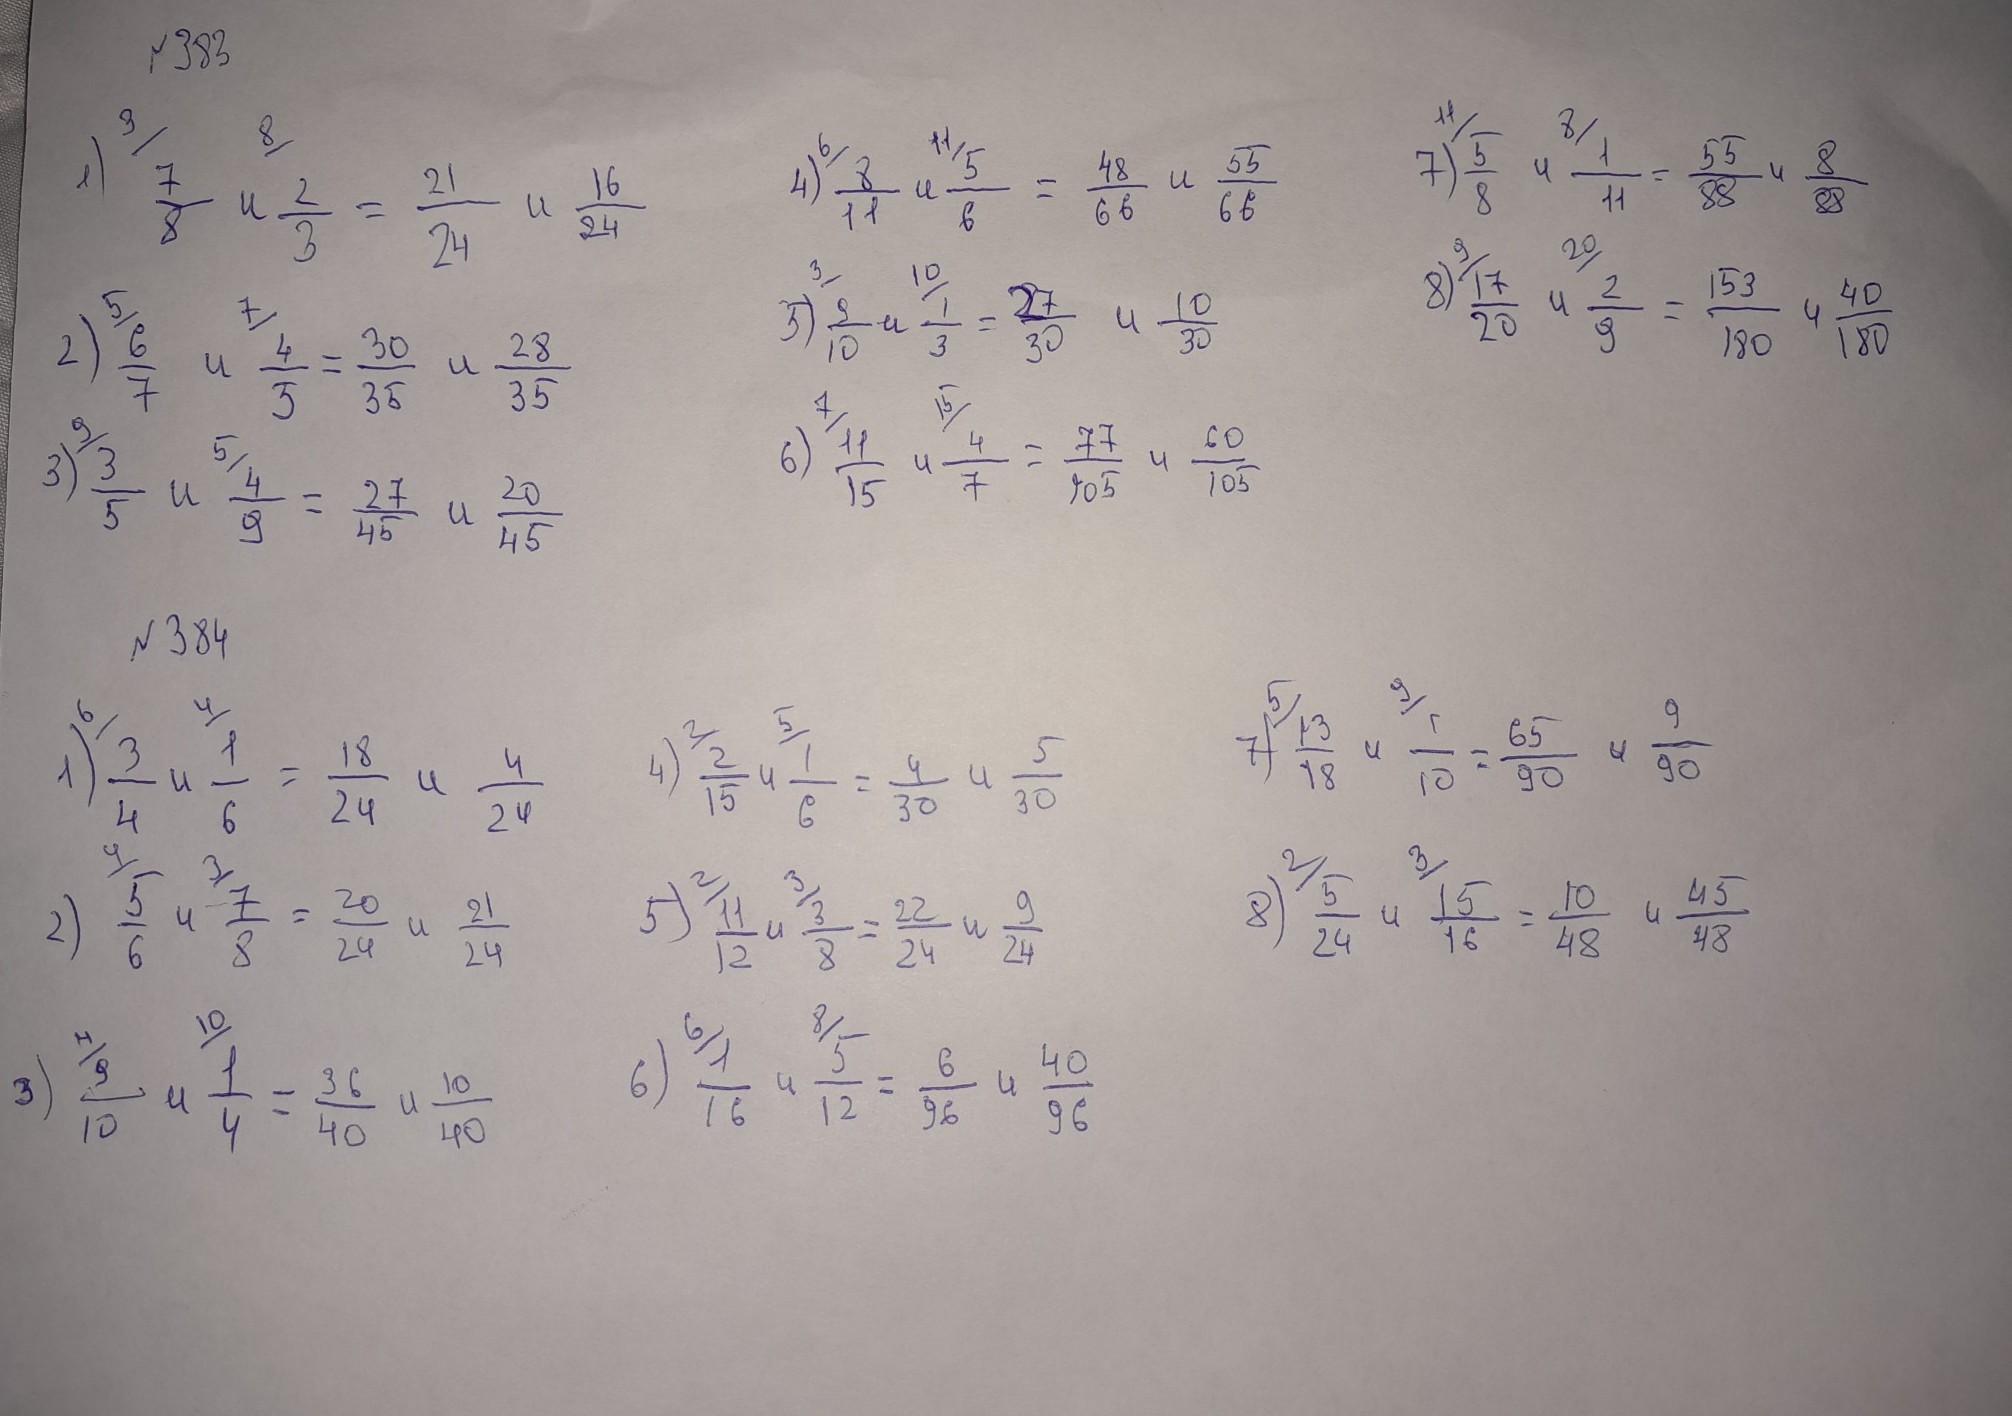 №383
1) 3/ 7/8 и 8/ 2/3 = 21/24 и 16/24
2) 5/ 6/7 и 7/ 4/5 = 30/35 и 28/35
3) 9/ 3/5 и 5/ 4/9 = 27/45 и 20/45
4) 6/ 8/11 и 11/ 5/6 = 48/66 и 55/66
5) 3/ 9/10 и 10/ 1/3 = 27/30 и 10/30
6) 7/ 11/15 и 15/ 4/7 = 77/105 и 60/105
7) 11/ 5/8 и 8/ 1/11 = 55/88 и 8/88
8) 9/ 17/20 и 20/ 2/9 = 153/180 и 40/180
№384
1) 6/ 3/4 и 4/ 1/6 = 18/24 и 4/24
2) 4/ 5/6 и 3/ 7/8 = 20/24 и 21/24
3) 4/ 9/10 и 10/ 1/4 = 36/40 и 10/40
4) 2/ 2/15 и 5/ 1/6 = 4/30 и 5/30
5) 2/ 11/12 и 3/ 3/8 = 22/24 и 9/24
6) 6/ 1/16 и 8/ 5/12 = 6/96 и 40/96
7) 5/ 13/18 и 9/ 1/10 = 65/90 и 9/90
8) 2/ 5/24 и 3/ 15/16 = 10/48 и 45/48